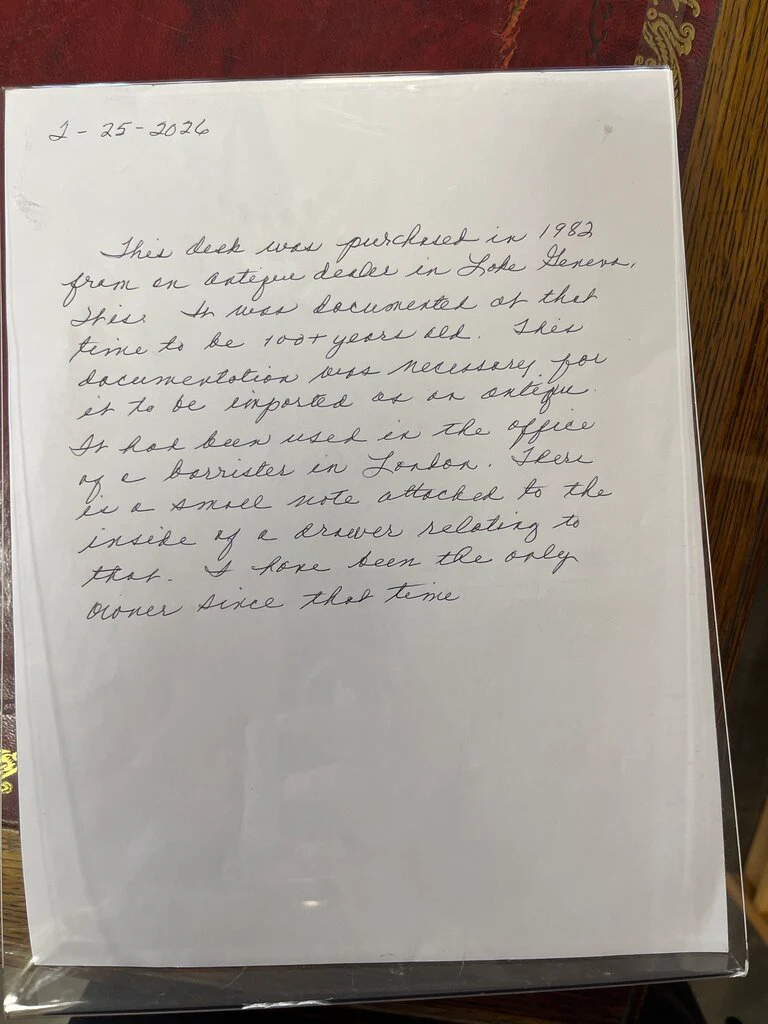 2-25-2026
This desk was purchased in 1982
from an antique dealer in Lake Geneva,
Wis. It was documented at that
time to be 100+ years old. This
documentation was necessary for
it to be imported as an antique.
It had been used in the office
of a barrister in London. There
is a small note attached to the
inside of a drawer relating to
that. I have been the only
owner since that time